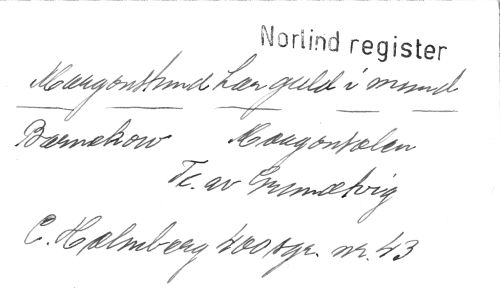 Norlind register
Morgonstund har guld i mund
Barnekow Morgonsolen
Tc. av Grundtvig
C. Holmberg 400 sgr. nr. 43